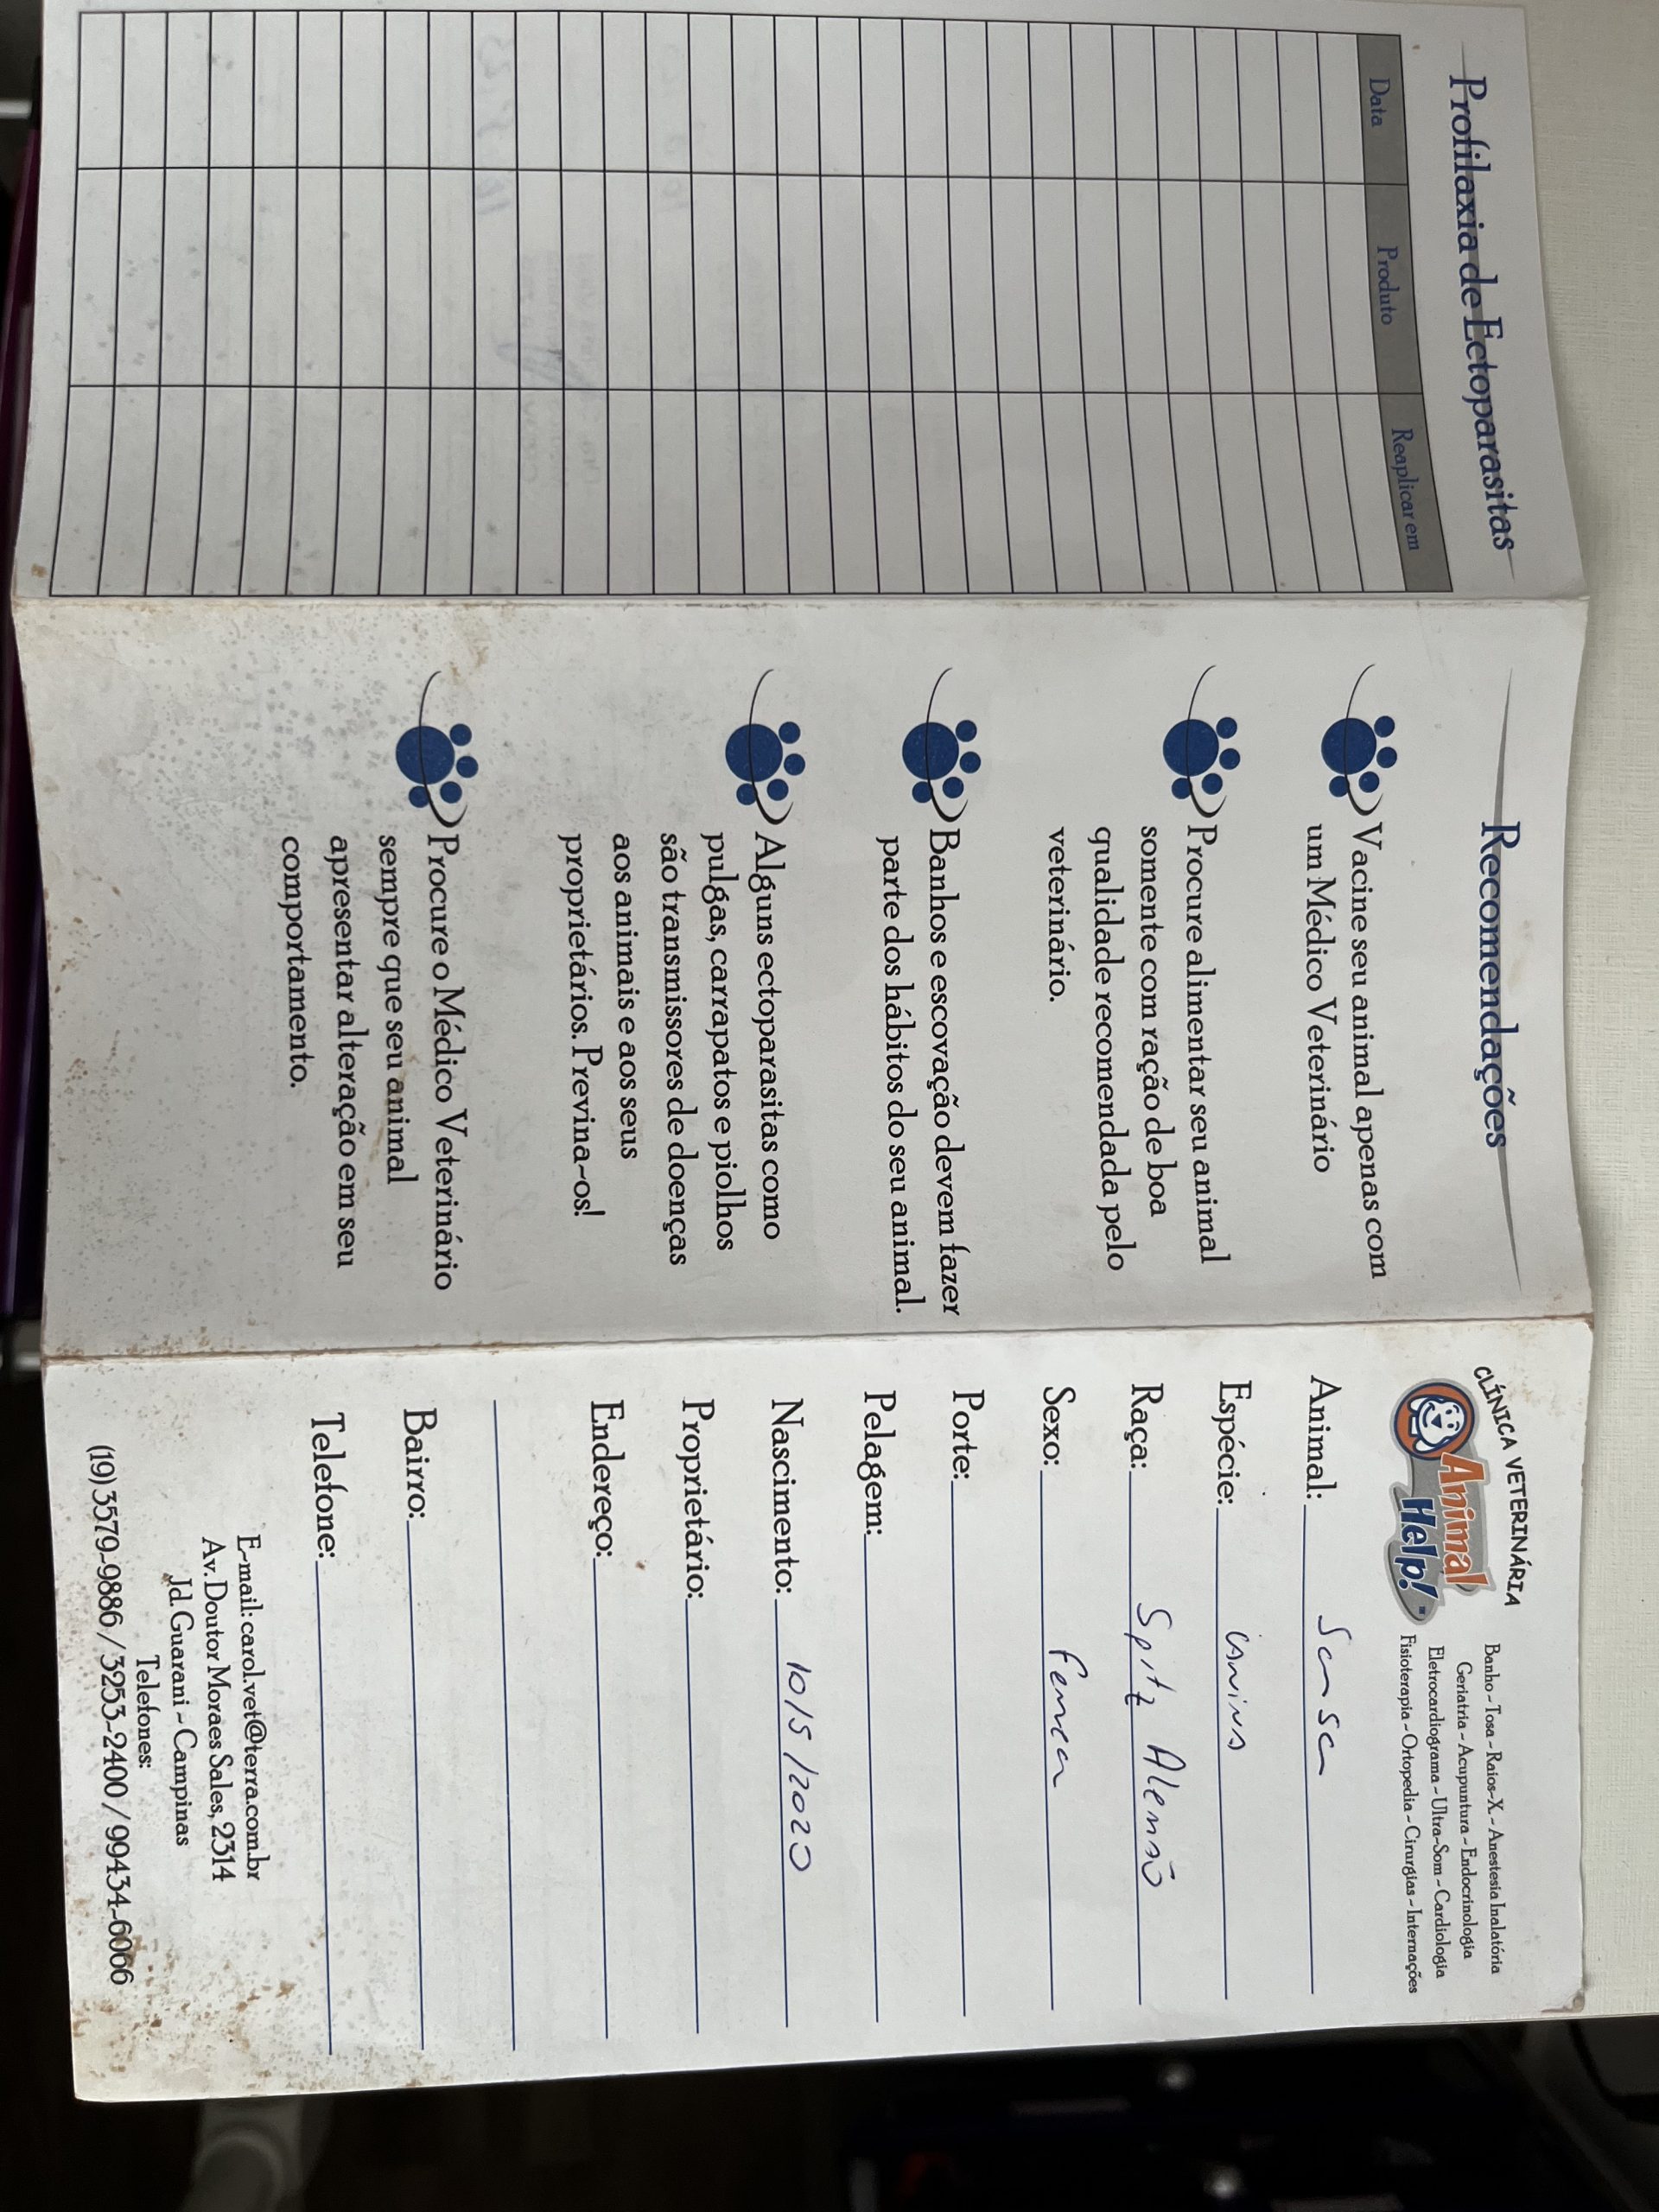 Profilaxia de Ectoparasitas
Data Produto Reaplicar em
Recomendações
Vacine seu animal apenas com
um Médico Veterinário
Procure alimentar seu animal
somente com ração de boa
qualidade recomendada pelo
veterinário.
Banhos e escovação devem fazer
parte dos hábitos do seu animal.
Alguns ectoparasitas como
pulgas, carrapatos e piolhos
são transmissores de doenças
aos animais e aos seus
proprietários. Previna-os!
Procure o Médico Veterinário
sempre que seu animal
apresentar alteração em seu
comportamento.
CLÍNICA VETERINÁRIA
Animal
Help!
Banho - Tosa - Raios-X - Anestesia Inalatória
Geriatria - Acupuntura - Endocrinologia
Eletrocardiograma - Ultra-Som - Cardiologia
Fisioterapia - Ortopedia - Cirurgias - Internações
Animal: Sansa
Espécie: canina
Raça: Spitz Alemão
Sexo: femea
Porte:
Pelagem:
Nascimento: 10/5/2020
Proprietário:
Endereço:
Bairro:
Telefone:
E-mail: carol.vet@terra.com.br
Av. Doutor Moraes Sales, 2314
Jd. Guarani - Campinas
Telefones:
(19) 3579-9886 / 3253-2400 / 99434-6066